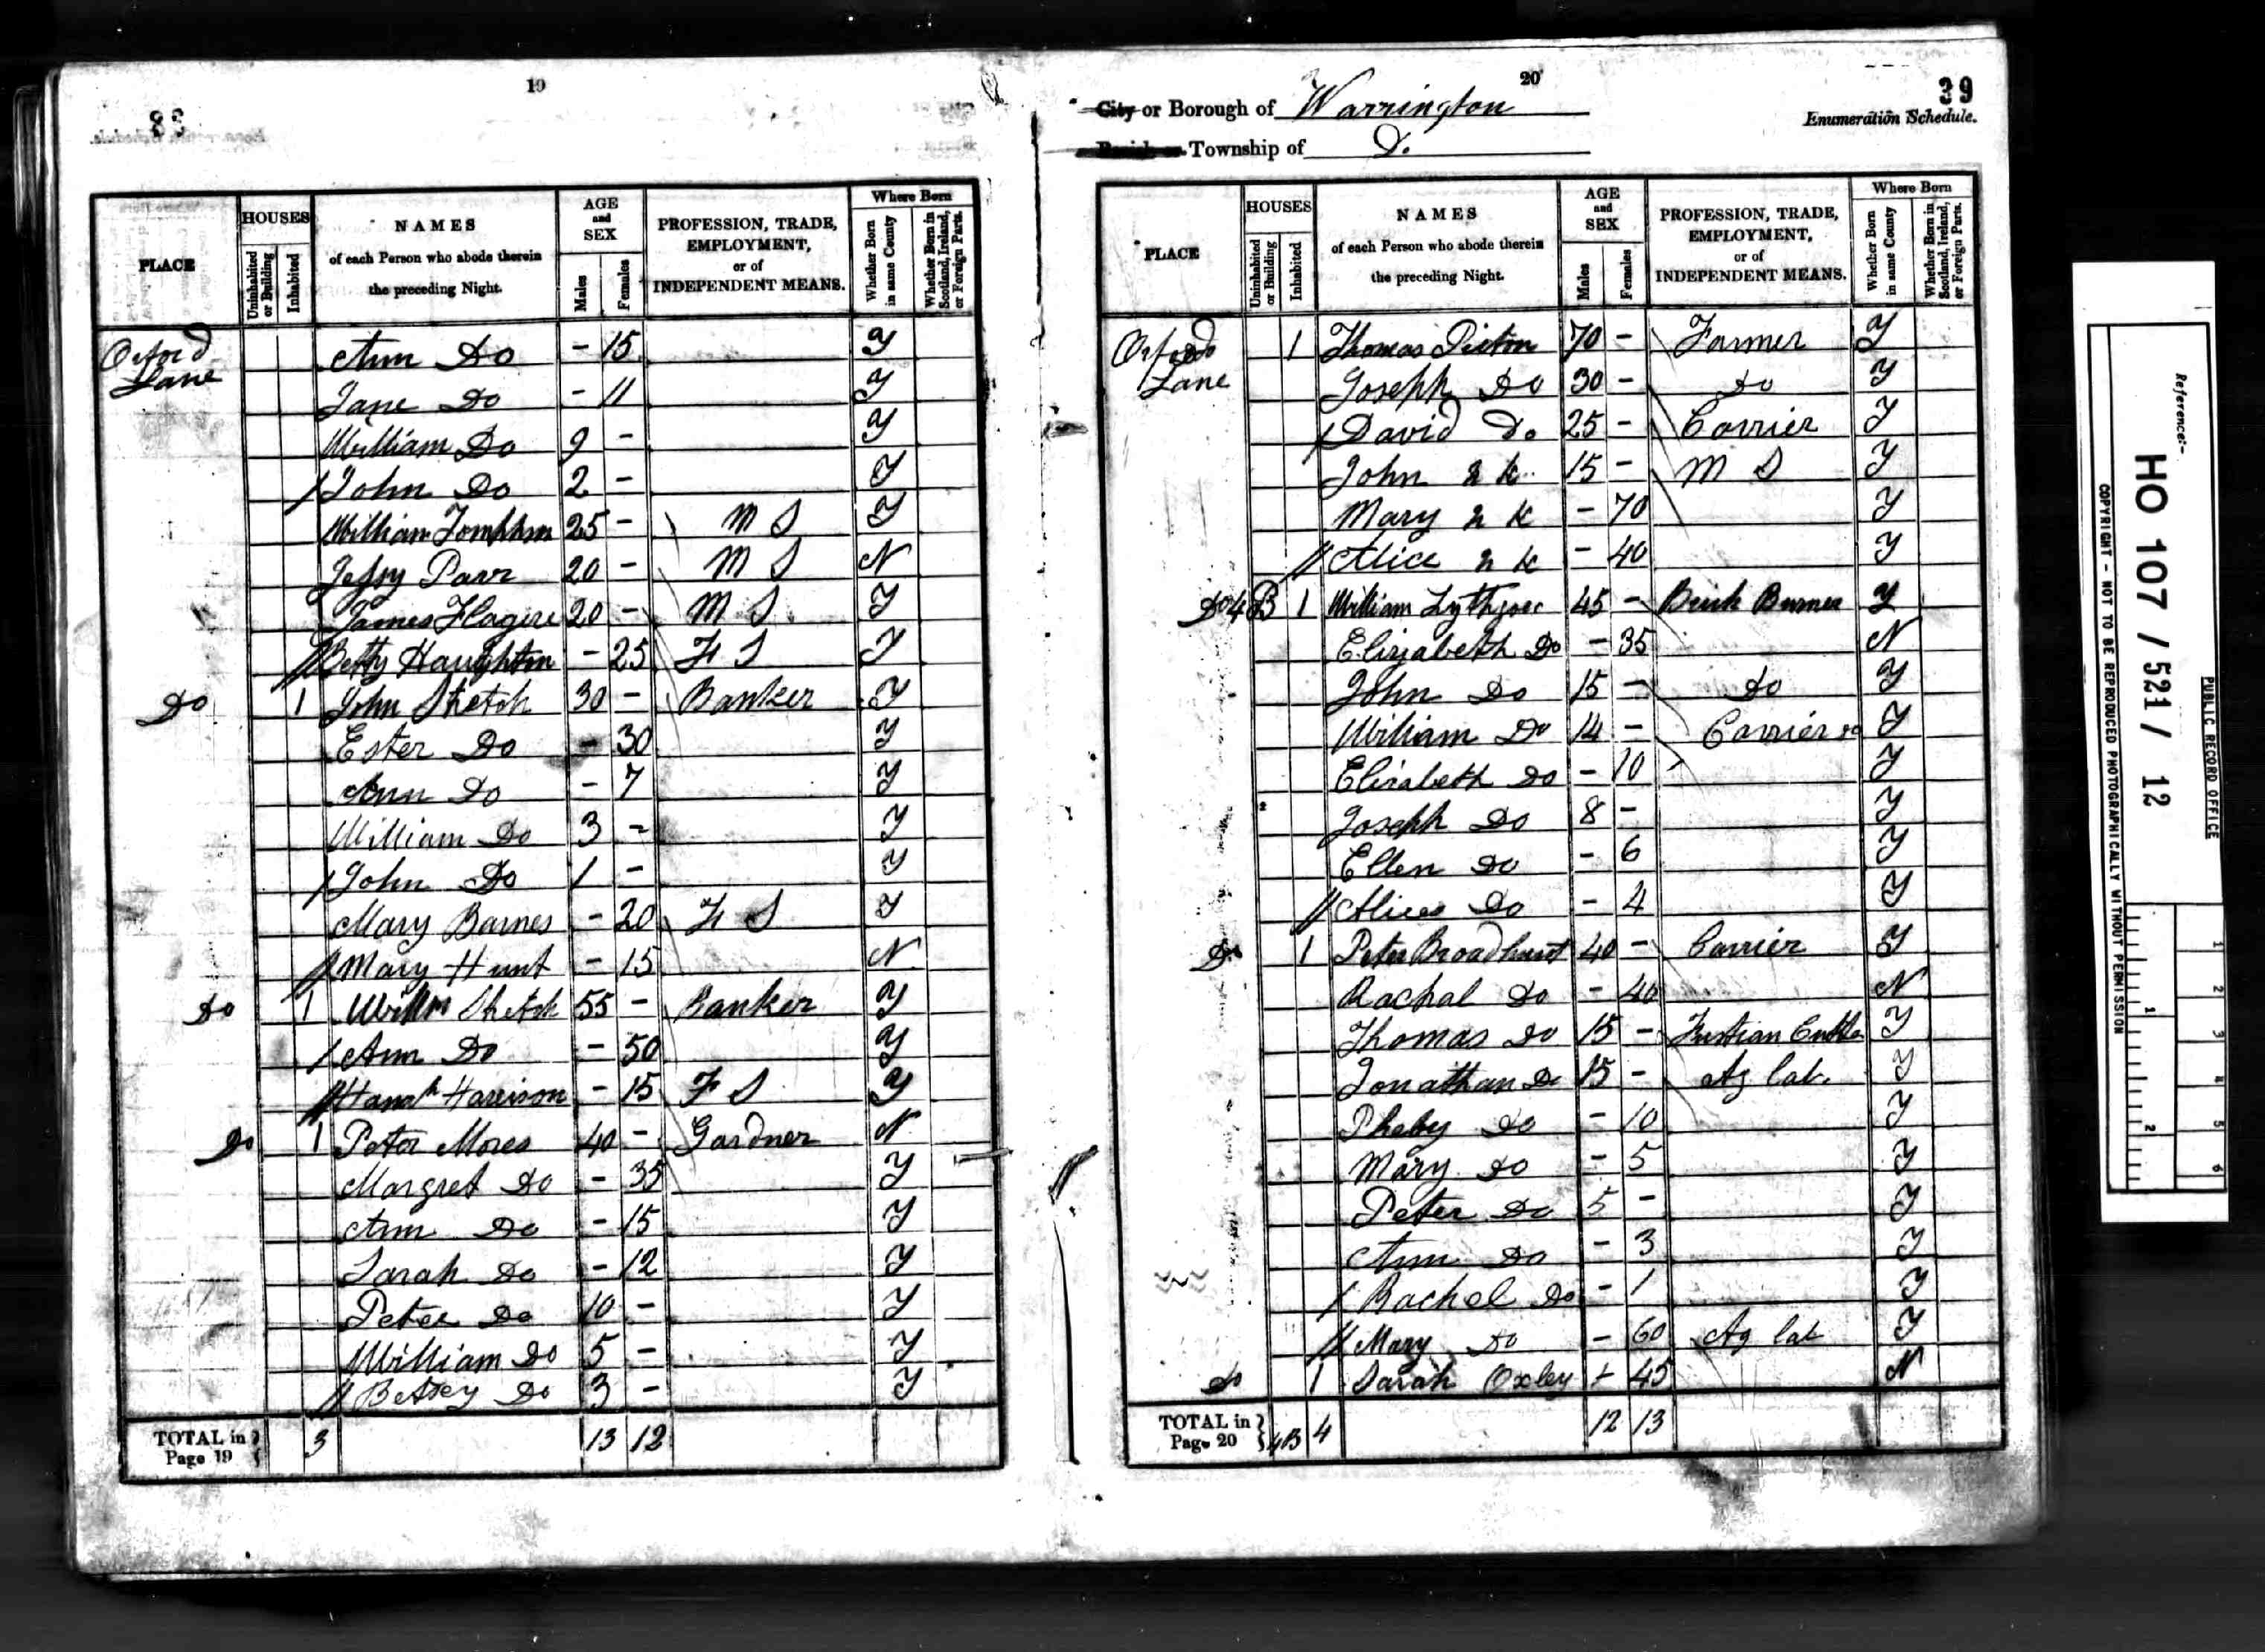 19
PLACE
HOUSES
Uninhabited or Building
Inhabited
NAMES
of each Person who abode therein
the preceding Night.
AGE and SEX
Males
Females
PROFESSION, TRADE, EMPLOYMENT, or of INDEPENDENT MEANS.
Where Born
Whether Born in same County
Whether Born in Scotland, Ireland, or Foreign Parts.
Orford Lane Ann Do - 15 Y
Jane Do - 11 Y
William Do 9 - Y
John Do 2 - Y
William 25 - M S Y
Parr 20 - M S N
James 20 - M S Y
Betty Haughton - 25 F S Y
Do 1 John 30 - Banker Y
Ester Do - 30 Y
Ann Do - 7 Y
William Do 3 - Y
John Do 1 - Y
Mary Barnes - 20 F S Y
Mary Hunt - 15 N
Do 1 55 - Banker Y
Ann Do - 50 Y
Hanah Harrison - 15 F S Y
Do 1 Peter Mores 40 - Gardner N
Margret Do - 35 Y
Ann Do - 15 Y
Sarah Do - 12 Y
Peter Do 10 - Y
William Do 5 - Y
Betsey Do 3 - Y
TOTAL in Page 19 3 13 12
20
29
City or Borough of Warrington
Enumeration Schedule.
Township of D.
PLACE
HOUSES
Uninhabited or Building
Inhabited
NAMES
of each Person who abode therein
the preceding Night.
AGE and SEX
Males
Females
PROFESSION, TRADE, EMPLOYMENT, or of INDEPENDENT MEANS.
Where Born
Whether Born in same County
Whether Born in Scotland, Ireland, or Foreign Parts.
Orford Lane 1 Thomas Picton 70 - Farmer Y
Joseph Do 30 - Do Y
David Do 25 - Carrier Y
John 15 - M S Y
Mary - 70 Y
Alice - 40 Y
Do 4 B 1 William Lythgoe 45 - Brick Burner Y
Elizabeth Do - 35 N
John Do 15 - Do Y
William Do 14 - Carrier Y
Elizabeth Do - 10 Y
Joseph Do 8 - Y
Ellen Do - 6 Y
Alice Do - 4 Y
Do 1 Peter Broadhurst 40 - Carrier Y
Rachal Do - 40 N
Thomas Do 15 - Fustian Cutter Y
Jonathan Do 15 - Ag lab. Y
Pheby Do - 10 Y
Mary Do - 5 Y
Peter Do 5 - Y
Ann Do - 3 Y
Rachel Do - 1 Y
Mary Do - 60 Ag lab Y
Do 1 Sarah Oxley + 45 N
TOTAL in Page 20 4B 4 12 13
Reference:-
HO 107 / 521 / 12
PUBLIC RECORD OFFICE
COPYRIGHT - NOT TO BE REPRODUCED PHOTOGRAPHICALLY WITHOUT PERMISSION
1 2 3 4 5 6
1 2